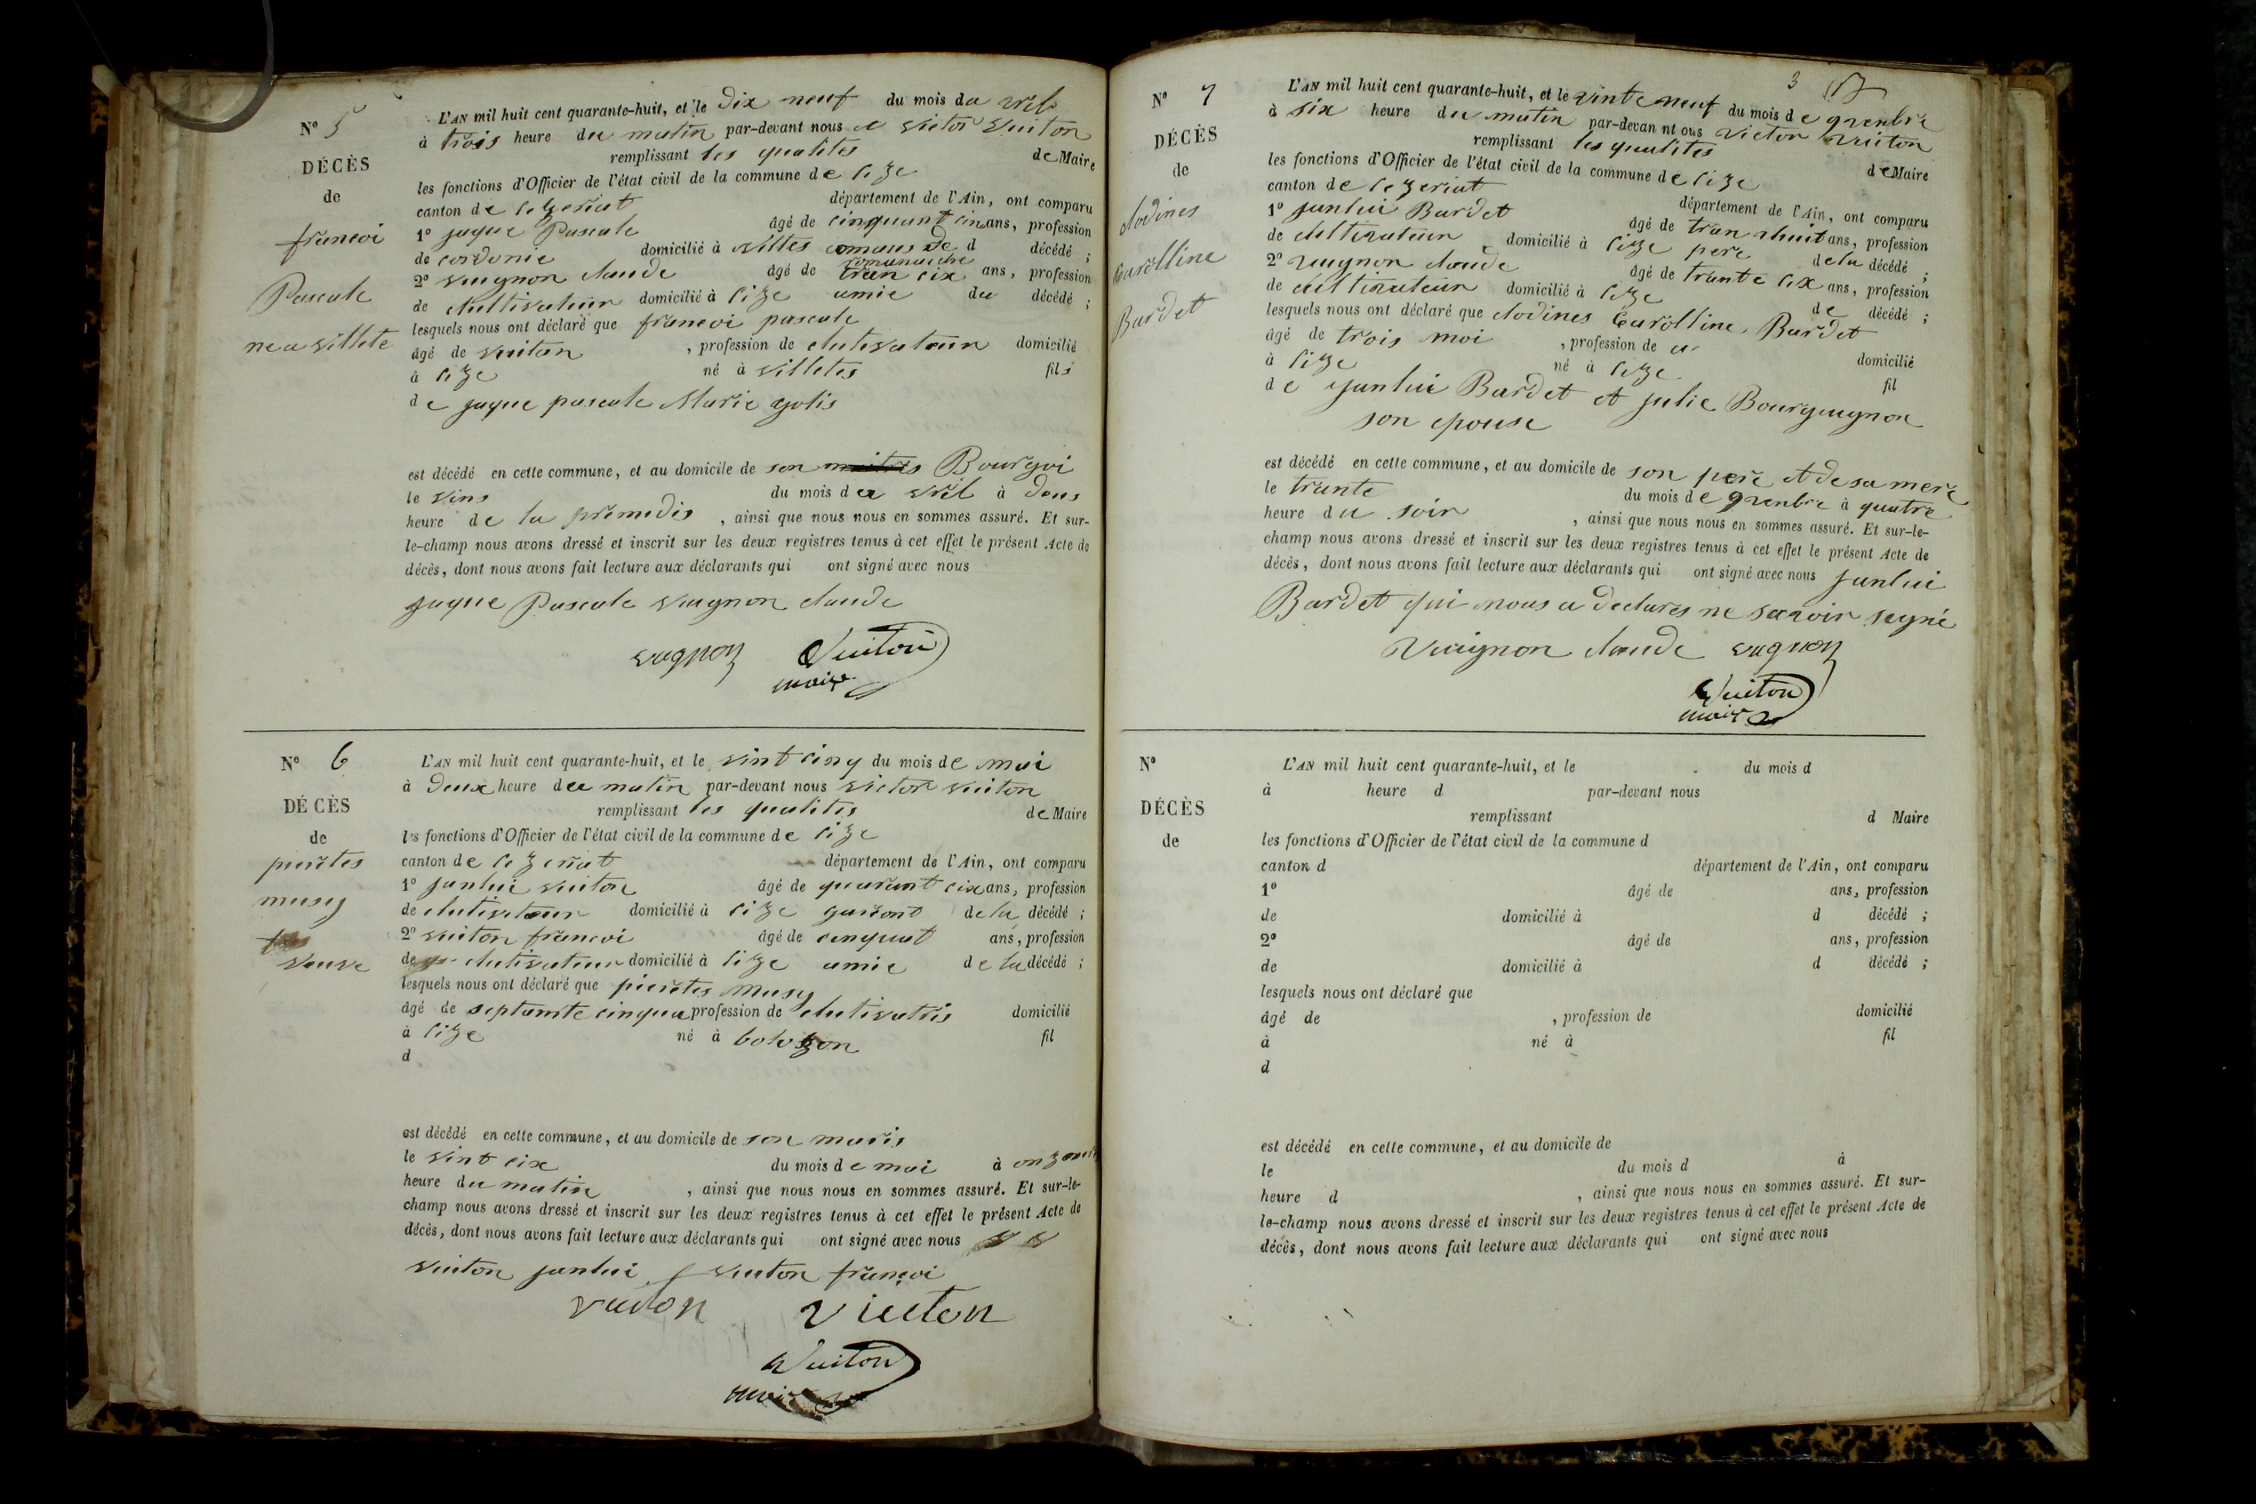 N° 5
DÉCÈS
de
francoi
Pascale
ne a villete
L'AN mil huit cent quarante-huit, et le Dix neuf du mois da vril
à trois heure du matin par-devant nous victor vuiton
remplissant les qualites de Maire
les fonctions d'Officier de l'état civil de la commune de cize
canton de département de l'Ain, ont comparu
1° jaque Pascale âgé de cinquant cin ans, profession
de cordonie domicilié à villes d décédé ;
2° vuignon claude âgé de tran cix ans, profession
de cultivateur domicilié à cize amie du décédé ;
lesquels nous ont déclaré que francoi pascale
âgé de , profession de domicilié
à cize né à villetes fils
de jaque pascale Marie golis
est décédé en cette commune, et au domicile de son Bourgoi
le vins du mois da vril à Deus
heure de la , ainsi que nous nous en sommes assuré. Et sur-
le-champ nous avons dressé et inscrit sur les deux registres tenus à cet effet le présent Acte de
décès, dont nous avons fait lecture aux déclarants qui ont signé avec nous
jaque Pascale vuignon claude
vuiton
maire
N° 6
DÉCÈS
de
pierètes
musy
veuve
L'AN mil huit cent quarante-huit, et le vint cinq du mois de mai
à Deux heure du matin par-devant nous victor vuiton
remplissant les qualites de Maire
les fonctions d'Officier de l'état civil de la commune de cize
canton de département de l'Ain, ont comparu
1° janlui vuiton âgé de quarant cix ans, profession
de domicilié à cize de la décédé ;
2° vuiton francoi âgé de cinquat ans, profession
de domicilié à cize amie de la décédé ;
lesquels nous ont déclaré que pierètes musy
âgé de septante cinqua profession de domicilié
à cize né à bolozon fil
d
est décédé en cette commune, et au domicile de son maris
le vint cix du mois de mai à
heure du matin , ainsi que nous nous en sommes assuré. Et sur-le-
champ nous avons dressé et inscrit sur les deux registres tenus à cet effet le présent Acte de
décès, dont nous avons fait lecture aux déclarants qui ont signé avec nous
vuiton janlui vuiton françoi
vuiton vieuton
vuiton
maire
3
N° 7
DÉCÈS
de
clodines
Carolline
Bardet
L'AN mil huit cent quarante-huit, et le vint neuf du mois de
à six heure du matin par-devan nt ous victor vuiton
remplissant les qualites de Maire
les fonctions d'Officier de l'état civil de la commune de cize
canton de cezeriat département de l'Ain, ont comparu
1° janlui Bardet âgé de tran nhuit ans, profession
de cultivateur domicilié à cize pere de la décédé ;
2° vuignon claude âgé de trante cix ans, profession
de cultivateur domicilié à cize de décédé ;
lesquels nous ont déclaré que clodines Carolline Bardet
âgé de trois moi , profession de domicilié
à cize né à cize fil
de janlui Bardet et julie Bourguignon
son epouse
est décédé en cette commune, et au domicile de son pere et de sa mere
le trante du mois de à quatre
heure du soir , ainsi que nous nous en sommes assuré. Et sur-le-
champ nous avons dressé et inscrit sur les deux registres tenus à cet effet le présent Acte de
décès, dont nous avons fait lecture aux déclarants qui ont signé avec nous janlui
Bardet qui nous a declares ne savoir segné
vuignon claude
vuiton
maire
N°
DÉCÈS
de
L'AN mil huit cent quarante-huit, et le du mois d
à heure d par-devant nous
remplissant d Maire
les fonctions d'Officier de l'état civil de la commune d
canton d département de l'Ain, ont comparu
1° âgé de ans, profession
de domicilié à d décédé ;
2° âgé de ans, profession
de domicilié à d décédé ;
lesquels nous ont déclaré que
âgé de , profession de domicilié
à né à fil
d
est décédé en cette commune, et au domicile de
le du mois d à
heure d , ainsi que nous nous en sommes assuré. Et sur-
le-champ nous avons dressé et inscrit sur les deux registres tenus à cet effet le présent Acte de
décès, dont nous avons fait lecture aux déclarants qui ont signé avec nous